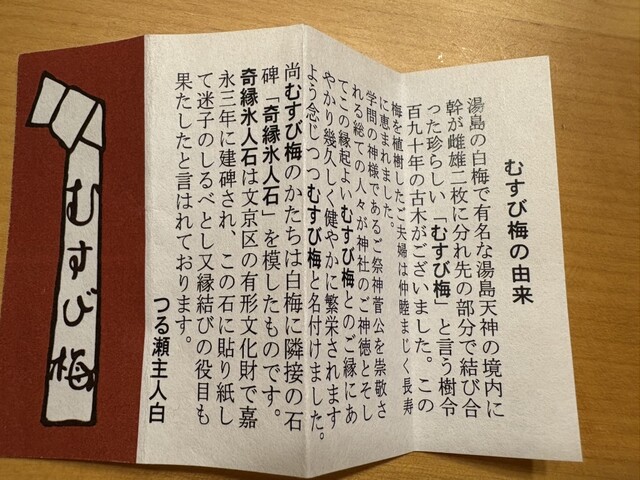 むすび梅の由来
湯島の白梅で有名な湯島天神の境内に
幹が雌雄二枚に分れ先の部分で結び合
った珍らしい「むすび梅」と言う樹令
百九十年の古木がございました。この
梅を植樹したご夫婦は仲睦まじく長寿
に恵まれました。
学問の神様であるご祭神菅公を崇敬さ
れる総ての人々が神社のご神徳とそし
てこの縁起よいむすび梅とのご縁にあ
やかり幾久しく健やかに繁栄されます
よう念じつつむすび梅と名付けました。
尚むすび梅のかたちは白梅に隣接の石
碑「奇縁氷人石」を模したものです。
奇縁氷人石は文京区の有形文化財で嘉
永三年に建碑され、この石に貼り紙し
て迷子のしるべとし又縁結びの役目も
果たしたと言はれております。
つる瀬主人白
むすび梅